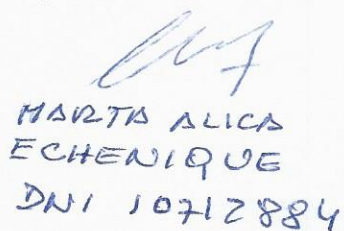 MARTA ALICA
ECHENIQUE
DNI 10712884